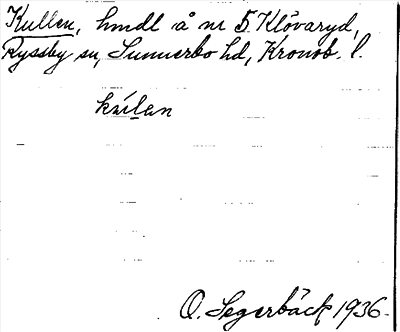 Kullen, hmdl å nr 5 Klövaryd,
Ryssby sn, Sunnerbo hd, Kronob. l.
O. Segerbäck 1936.